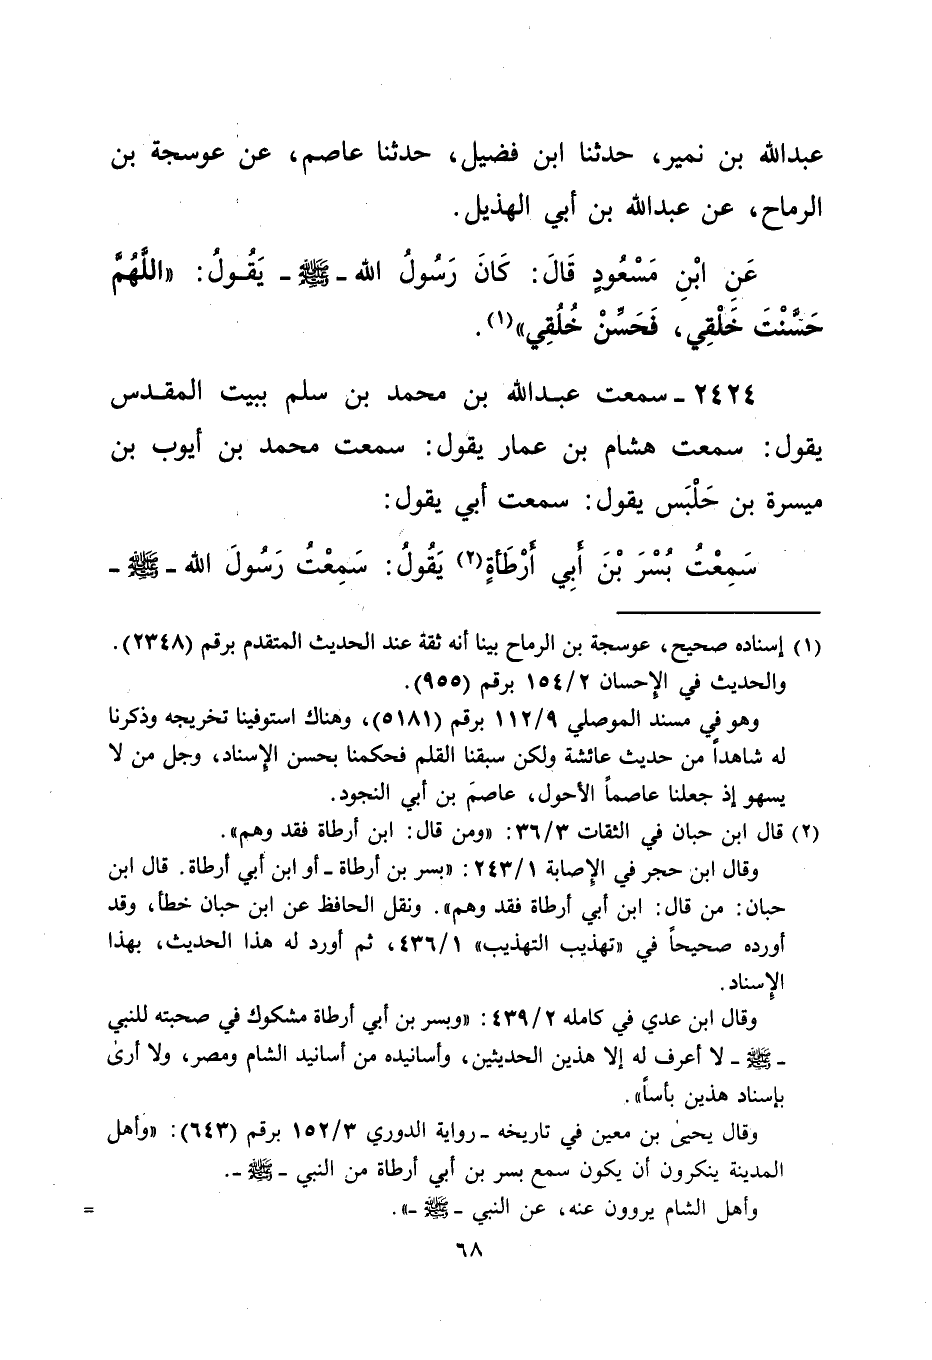 عبدالله بن نمير، حدثنا ابن فضيل، حدثنا عاصم، عن عوسجة بن
الرماح، عن عبدالله بن أبي الهذيل.
عَنِ ابْنِ مَسْعُودٍ قَالَ: كَانَ رَسُولُ الله ـ ﷺ ـ يَقُولُ: «اللَّهُمَّ
حَسَّنْتَ خَلْقِي، فَحَسِّنْ خُلُقِي»(١).
٢٤٢٤ ـ سمعت عبدالله بن محمد بن سلم ببيت المقدس
يقول: سمعت هشام بن عمار يقول: سمعت محمد بن أيوب بن
ميسرة بن حَلْبَس يقول: سمعت أبي يقول:
سَمِعْتُ بُسْرَ بْنَ أَبِي أَرْطَأةٍ(٢) يَقُولُ: سَمِعْتُ رَسُولَ الله ـ ﷺ ـ
(١) إسناده صحيح، عوسجة بن الرماح بينا أنه ثقة عند الحديث المتقدم برقم (٢٣٤٨).
والحديث في الإحسان ١٥٤/٢ برقم (٩٥٥).
وهو في مسند الموصلي ١١٢/٩ برقم (٥١٨١)، وهناك استوفينا تخريجه وذكرنا
له شاهداً من حديث عائشة ولكن سبقنا القلم فحكمنا بحسن الإسناد، وجل من لا
يسهو إذ جعلنا عاصماً الأحول، عاصمَ بن أبي النجود.
(٢) قال ابن حبان في الثقات ٣٦/٣: «ومن قال: ابن أرطاة فقد وهم».
وقال ابن حجر في الإصابة ٢٤٣/١: «بسر بن أرطاة ـ أو ابن أبي أرطاة. قال ابن
حبان: من قال: ابن أبي أرطاة فقد وهم». ونقل الحافظ عن ابن حبان خطأ، وقد
أورده صحيحاً في «تهذيب التهذيب» ٤٣٦/١، ثم أورد له هذا الحديث، بهذا
الإسناد.
وقال ابن عدي في كامله ٤٣٩/٢: «وبسر بن أبي أرطاة مشكوك في صحبته للنبي
ـ ﷺ ـ لا أعرف له إلا هذين الحديثين، وأسانيده من أسانيد الشام ومصر، ولا أرىٰ
بإسناد هذين بأساً».
وقال يحيىٰ بن معين في تاريخه ـ رواية الدوري ١٥٢/٣ برقم (٦٤٣): «وأهل
المدينة ينكرون أن يكون سمع بسر بن أبي أرطاة من النبي ـ ﷺ ـ.
وأهل الشام يروون عنه، عن النبي ـ ﷺ ـ». =
٦٨